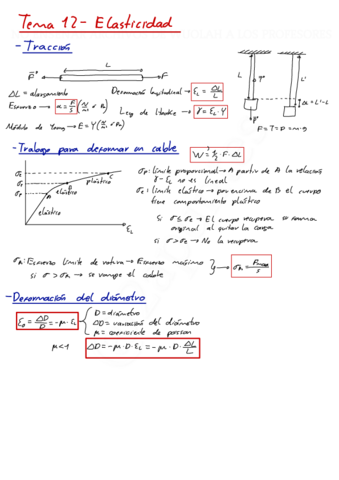 Tema 12 - Elasticidad
- Tracción
L
F
F
L
L
F
ΔL = L' - L
F
F = T = P = m·g
ΔL = alargamiento
Deformación longitudinal → ε_L = ΔL/L
Esfuerzo → σ = F/S (N/m² o Pa)
Ley de Hooke → σ = ε_L · Y
Módulo de Young → E = Y (N/m² o Pa)
- Trabajo para deformar un cable
W = 1/2 F · ΔL
σ
σ_E
σ_P
A
B
C
elástico
plástico
elástico
ε_L
σ_P: límite proporcional → A partir de A la relación
σ - ε_L no es lineal
σ_E: límite elástico → por encima de B el cuerpo
tiene comportamiento plástico
si σ ≤ σ_E → El cuerpo recupera su forma
original al quitar la carga
si σ > σ_E → No la recupera
σ_R: Esfuerzo límite de rotura → Esfuerzo máximo
si σ > σ_R → se rompe el cable
σ_R = F_max/S
- Deformación del diámetro
ε_D = ΔD/D = -μ · ε_L
D = diámetro
ΔD = variación del diámetro
μ = coeficiente de poisson
μ < 1
ΔD = -μ · D · ε_L = -μ · D · ΔL/L